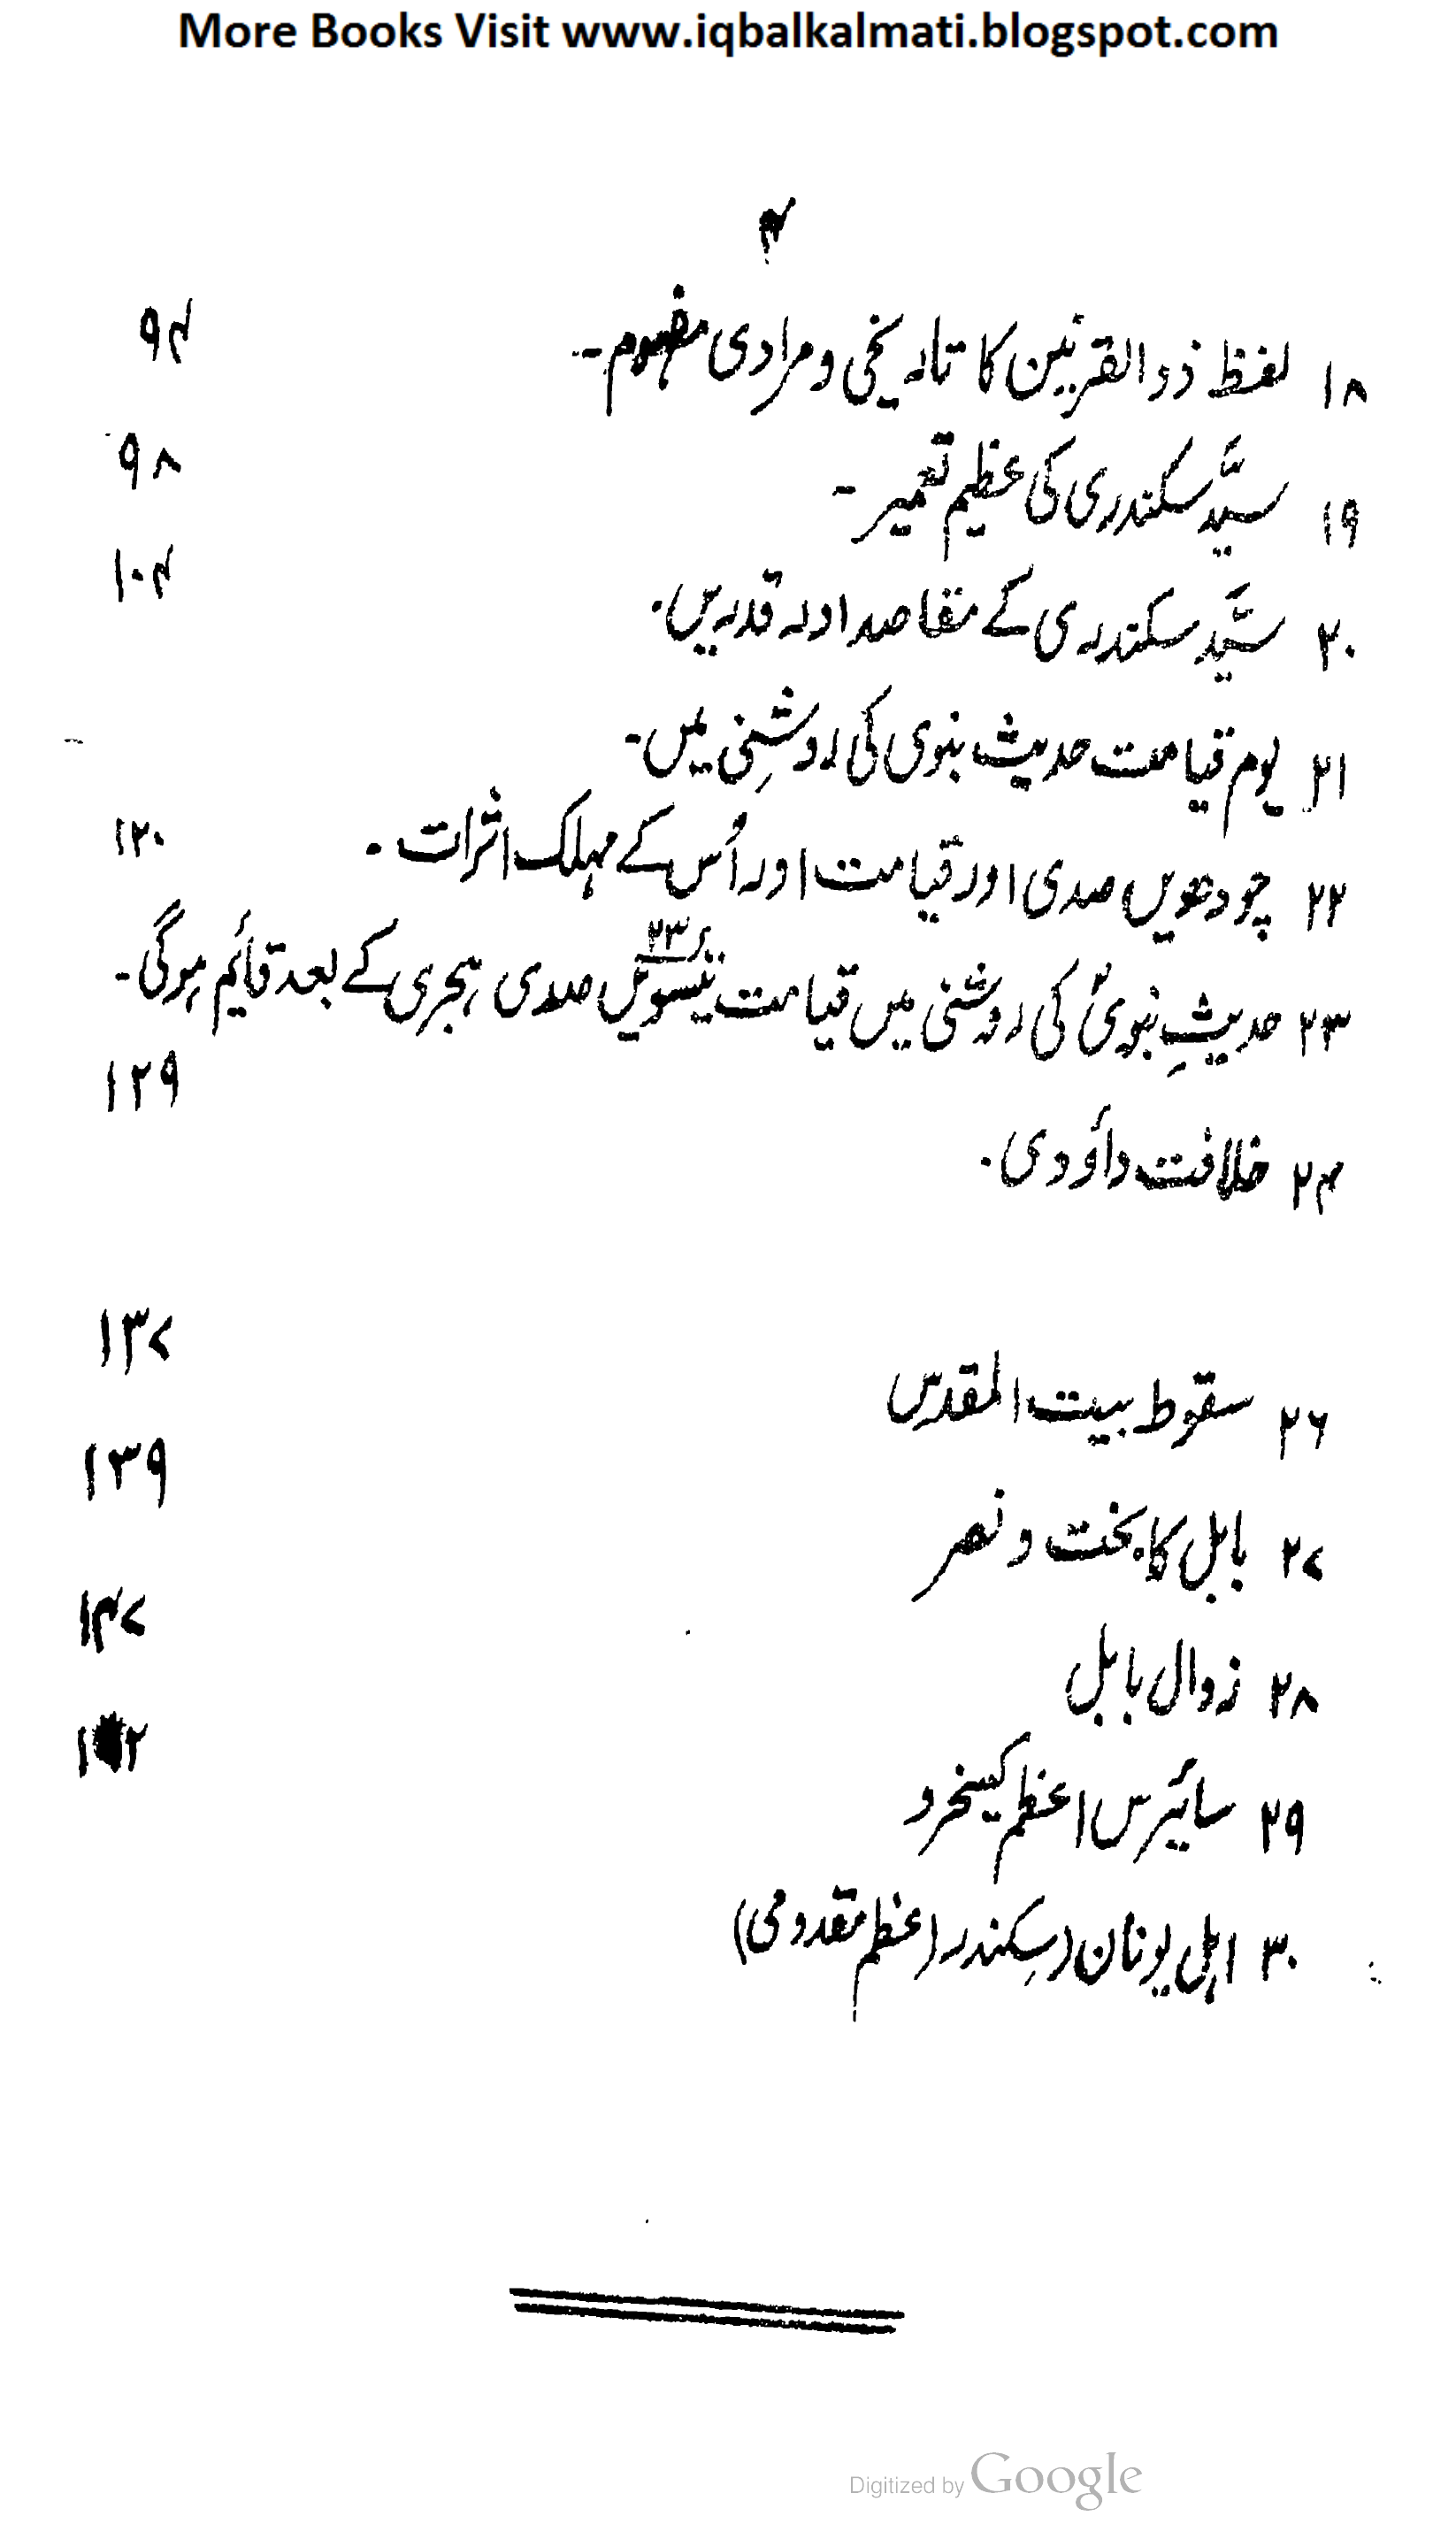 More Books Visit www.iqbalkalmati.blogspot.com
۴
۱۸ لفظ ذوالقرنین کا تاریخی و مرادی مفہوم۔ ۹۴
۱۹ سیَّد سکندری کی عظیم تعمیر۔ ۹۸
۲۰ سیَّد سکندری کے مقاصد اور قدریں۔ ۱۰۴
۲۱ یوم قیامت حدیث نبوی کی روشنی میں۔
۲۲ چودھویں صدی اور قیامت اور اُس کے مہلک اثرات۔ ۱۲۰
۲۳ حدیثِ نبویؐ کی روشنی میں قیامت تیئسویں ۲۳ صدی ہجری کے بعد قائم ہوگی۔
۱۲۹
۲۴ خلافت داؤدی۔
۱۳۷
۲۶ سقوط بیت المقدس
۱۳۹
۲۷ بابل کا بخت و نصر
۱۴۷
۲۸ زوال بابل
۲۹ سائیرس اعظم کیسخرو
۳۰ اہل یونان (سکندر اعظم مقدومی)
Digitized by Google